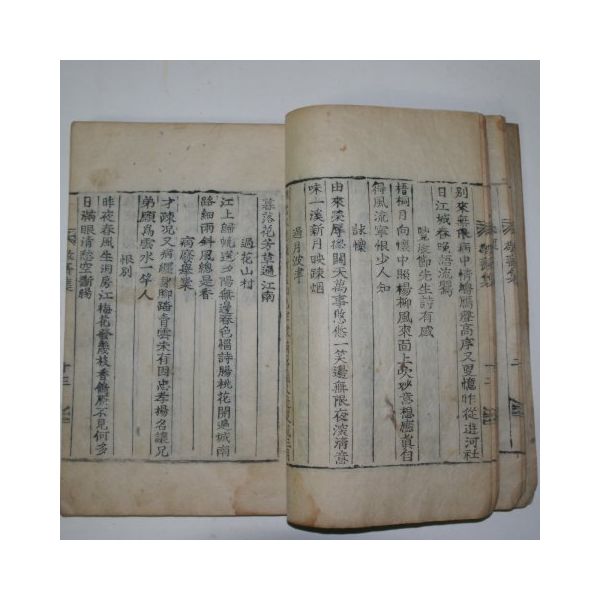 別來無限病中情鴻雁聲高序又更憶昨從遊河社
日江城春晚語流鶯
覽淑儒先生詩有感
梧桐月向懷中照楊柳風來面上吹妙意想應眞自
得風流寧恨少人知
詠懷
由來榮辱總關天萬事悠悠一笑邊無限夜深淸意
味一溪新月映疎烟
過月波亭
暮落花芳草過江南
過花山村
江上歸帆遶夕陽無邊春色惱詩腸桃花開遍城南
路細雨斜風總是香
病廢舉業
才疎况又病纏身脚踏靑雲未有因忠孝揚名讓兄
弟願爲雲水一竿人
恨別
昨夜春風生洞房江梅花發幾枝香
不見何多
日滿眼清愁空斷腸
十三